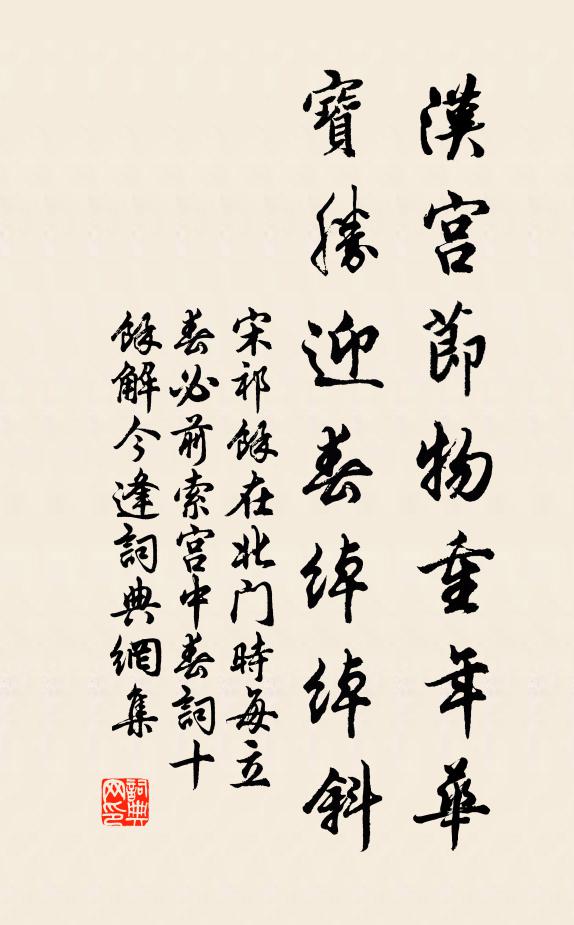 漢宮節物重年華
寶勝迎春綽綽斜
宋祁餘在北门時每立
春必前索宮中春詞十
餘解今逢詞典網集
詞典
网印